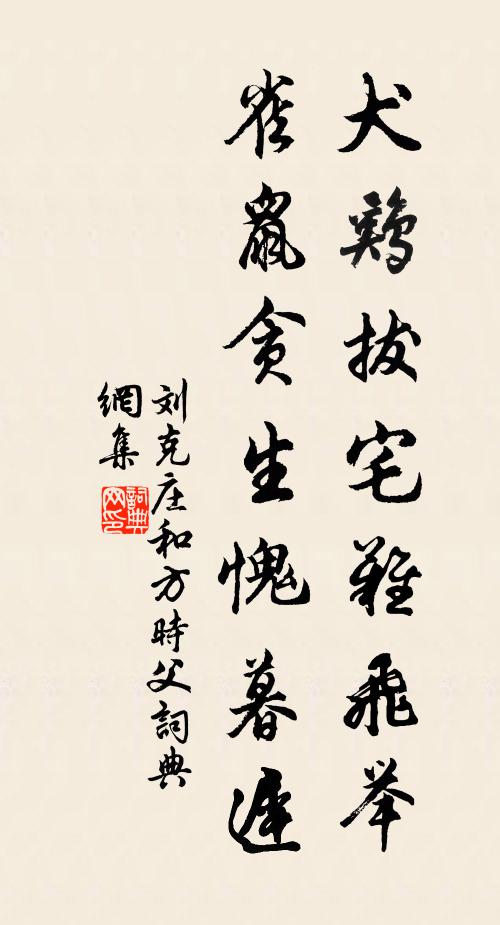 犬鷄拔宅難飛举
雀鼠貪生愧暮遲
刘克庄和方時父詞典
網集
詞典网印